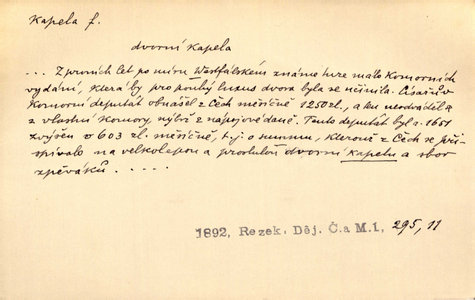 Kapela f.
dvorní kapela
... Z prvních let po míru Westfálském známe sice málo komorních
vydání, která by pro pouhý luxus dvora byla se učinila. Císařův
komorní deputát obnášel z Čech měsíčně 1250 zl., a ku neodváděl a
z vlastní komory nýbrž z nápojové daně. Tento deputát byl r. 1651
zvýšen o 603 zl. měsíčně, t. j. o summu, kterouž z Čech se při-
spívalo na velkolepou a proslulou dvorní kapelu a sbor
zpěváků. . . . . .
1892, Rezek. Děj. Č. a M. 1, 295, 11